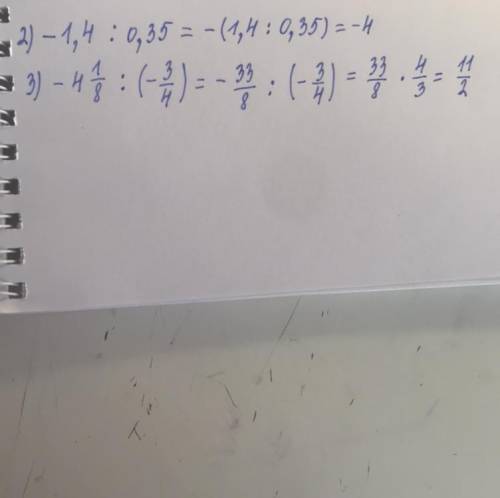 2) −1,4 : 0,35 = −(1,4 : 0,35) = −4
3) −4 1/8 : (−3/4) = −33/8 : (−3/4) = 33/8 · 4/3 = 11/2